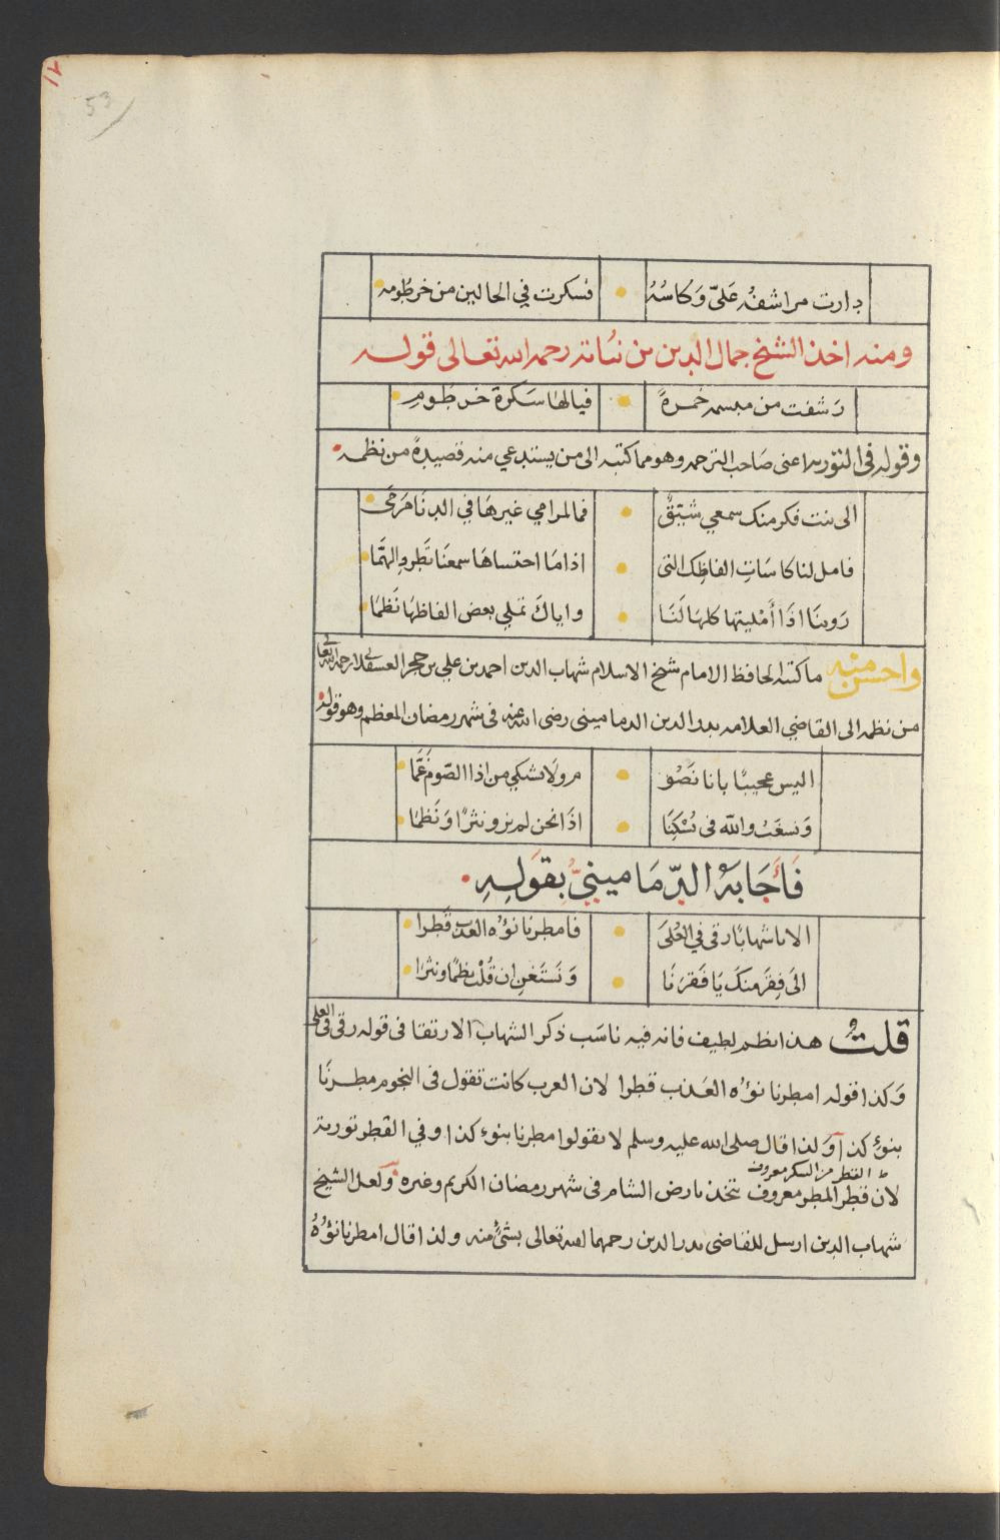 53
دارت مراشفُه عَلىّ وَكاسُهُ • فسكرت في الحالين من خرطُومه
ومنه اخذ الشيخ جمال الدين بن نباتة رحمه الله تعالى قوله
رَشفت من مبسمه خمرةً • فيالها سَكرة خرطُومِ
وقوله فى التوريه اعنى صَاحب الترجمه وهو مما كتبه الى من يستدعي منه قصيدةً من نظمه
الى بنت فكر منك سمعي شيّقٌ • فما لمرامي غيرهَا في الدنَا مَرمَى
فامل لنا كاسَاتِ الفاظِك التى • اذا مَا احتساهَا سمعنَا تَطرد الهمَّا
رَوينَا اذَا أَمْليتها كلها لَنَا • واياكَ تملي بعض الفاظهَا نَظمَا
واحسن منه ما كتبه الحافظ الامام شيخ الاسلام شهاب الدين احمد بن علي بن حجر العسقلانى رحمه الله تعالى
من نظمه الى القاضي العلامه بدر الدين الدماميني رضى الله عنه فى شهر رمضان المعظم وهو قوله
اليس عجيبًا بانا نَصُو • مر ولَا نشتكي من اذا الصّوم غَمَّا
وَنسغَبُ والله فى نُسْكِنَا • اذَا نحن لم نرو نثرًا وَنَظمَا
فَأَجَابَهُ الدّمَامينِيُّ بِقَولِهِ
الا يا شهابًا رقى في العُلَى • فامطرنا نوْه العذب قَطرا
الَى فِقَر منكَ يَا فَقرنَا • وَنَستَغنِ ان قُلتَ نظمًا ونثرَا
قلتُ هذا نظم لطيف فانه فيه ناسَب ذكر الشهاب الارتقا فى قوله رقى فى العلى
وَكذا قوله امطرنا نوْه العَذب قطرا لان العرب كانت تقول فى النجوم مطرنَا
بنوْء كذا وَلذا قال صلى الله عليه وسلم لا تقولوا مطرنا بنوء كذا وفي القطر تورية
القطر من السكر معروف
لان قطر المطر معروف يتخذ بارض الشام فى شهر رمضان الكريم وغيره ولعل الشيخ
شهاب الدين ارسل للقاضى بدر الدين رحمهما الله تعالى بشئ منه ولذا قال امطرنا نوْه